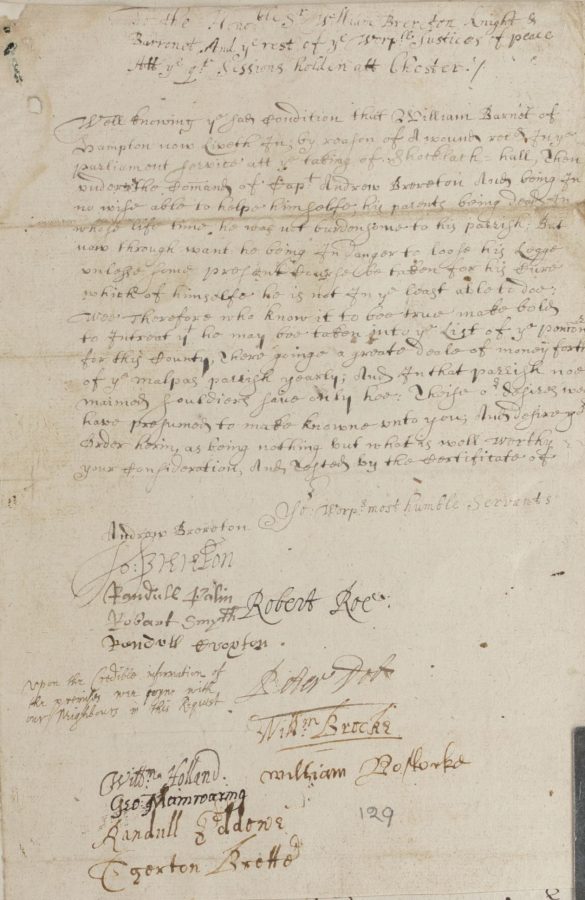 To the Honoble Sr William Brereton Knight &
Barronet And ye rest of ye Worpll Justices of peace
Att ye qr Sessions holden att Chester:/
Well knowing ye sad Condition that William Barnet of
Hampton now Liveth In, by reason of A wound recd In ye
parliament service att ye taking of Shocklach-hall, Then
under the Comand of Capt Andrew Brereton And being In
no wise able to helpe himselfe his parents being dead In
whose life time he was not burdensome to his parrish; But
now through want he being In danger to loose his Legge
unlesse some present Course be taken for his Cure
which of himselfe he is not In ye least able to doe;
Wee Therefore who know it to bee true make bold
to Intreat yt he may bee taken into ye List of ye
for this County, There goinge a greate deale of money forth
of ye malpas parrish yearly; And In that parrish noe
maimed souldiers save only hee; Theise or desires we
have presumed to make knowne unto you, And desire yor
Order herin, as being nothing but what is well worthy
your Consideration, And Tested by the Certificate of
Yor Worps most humble Servants
Andrew Brereton
Jo: Brereton
Randull Palin
Robart Smyth Robert Roe
Randull Croxton.
upon the Credible information of
the premises wee joyne with
our Neighbours in this Request
Peter Dod
Willm Brocke
Willm Holland. william
Geo: Mainwaring
Randull
Egerton
129